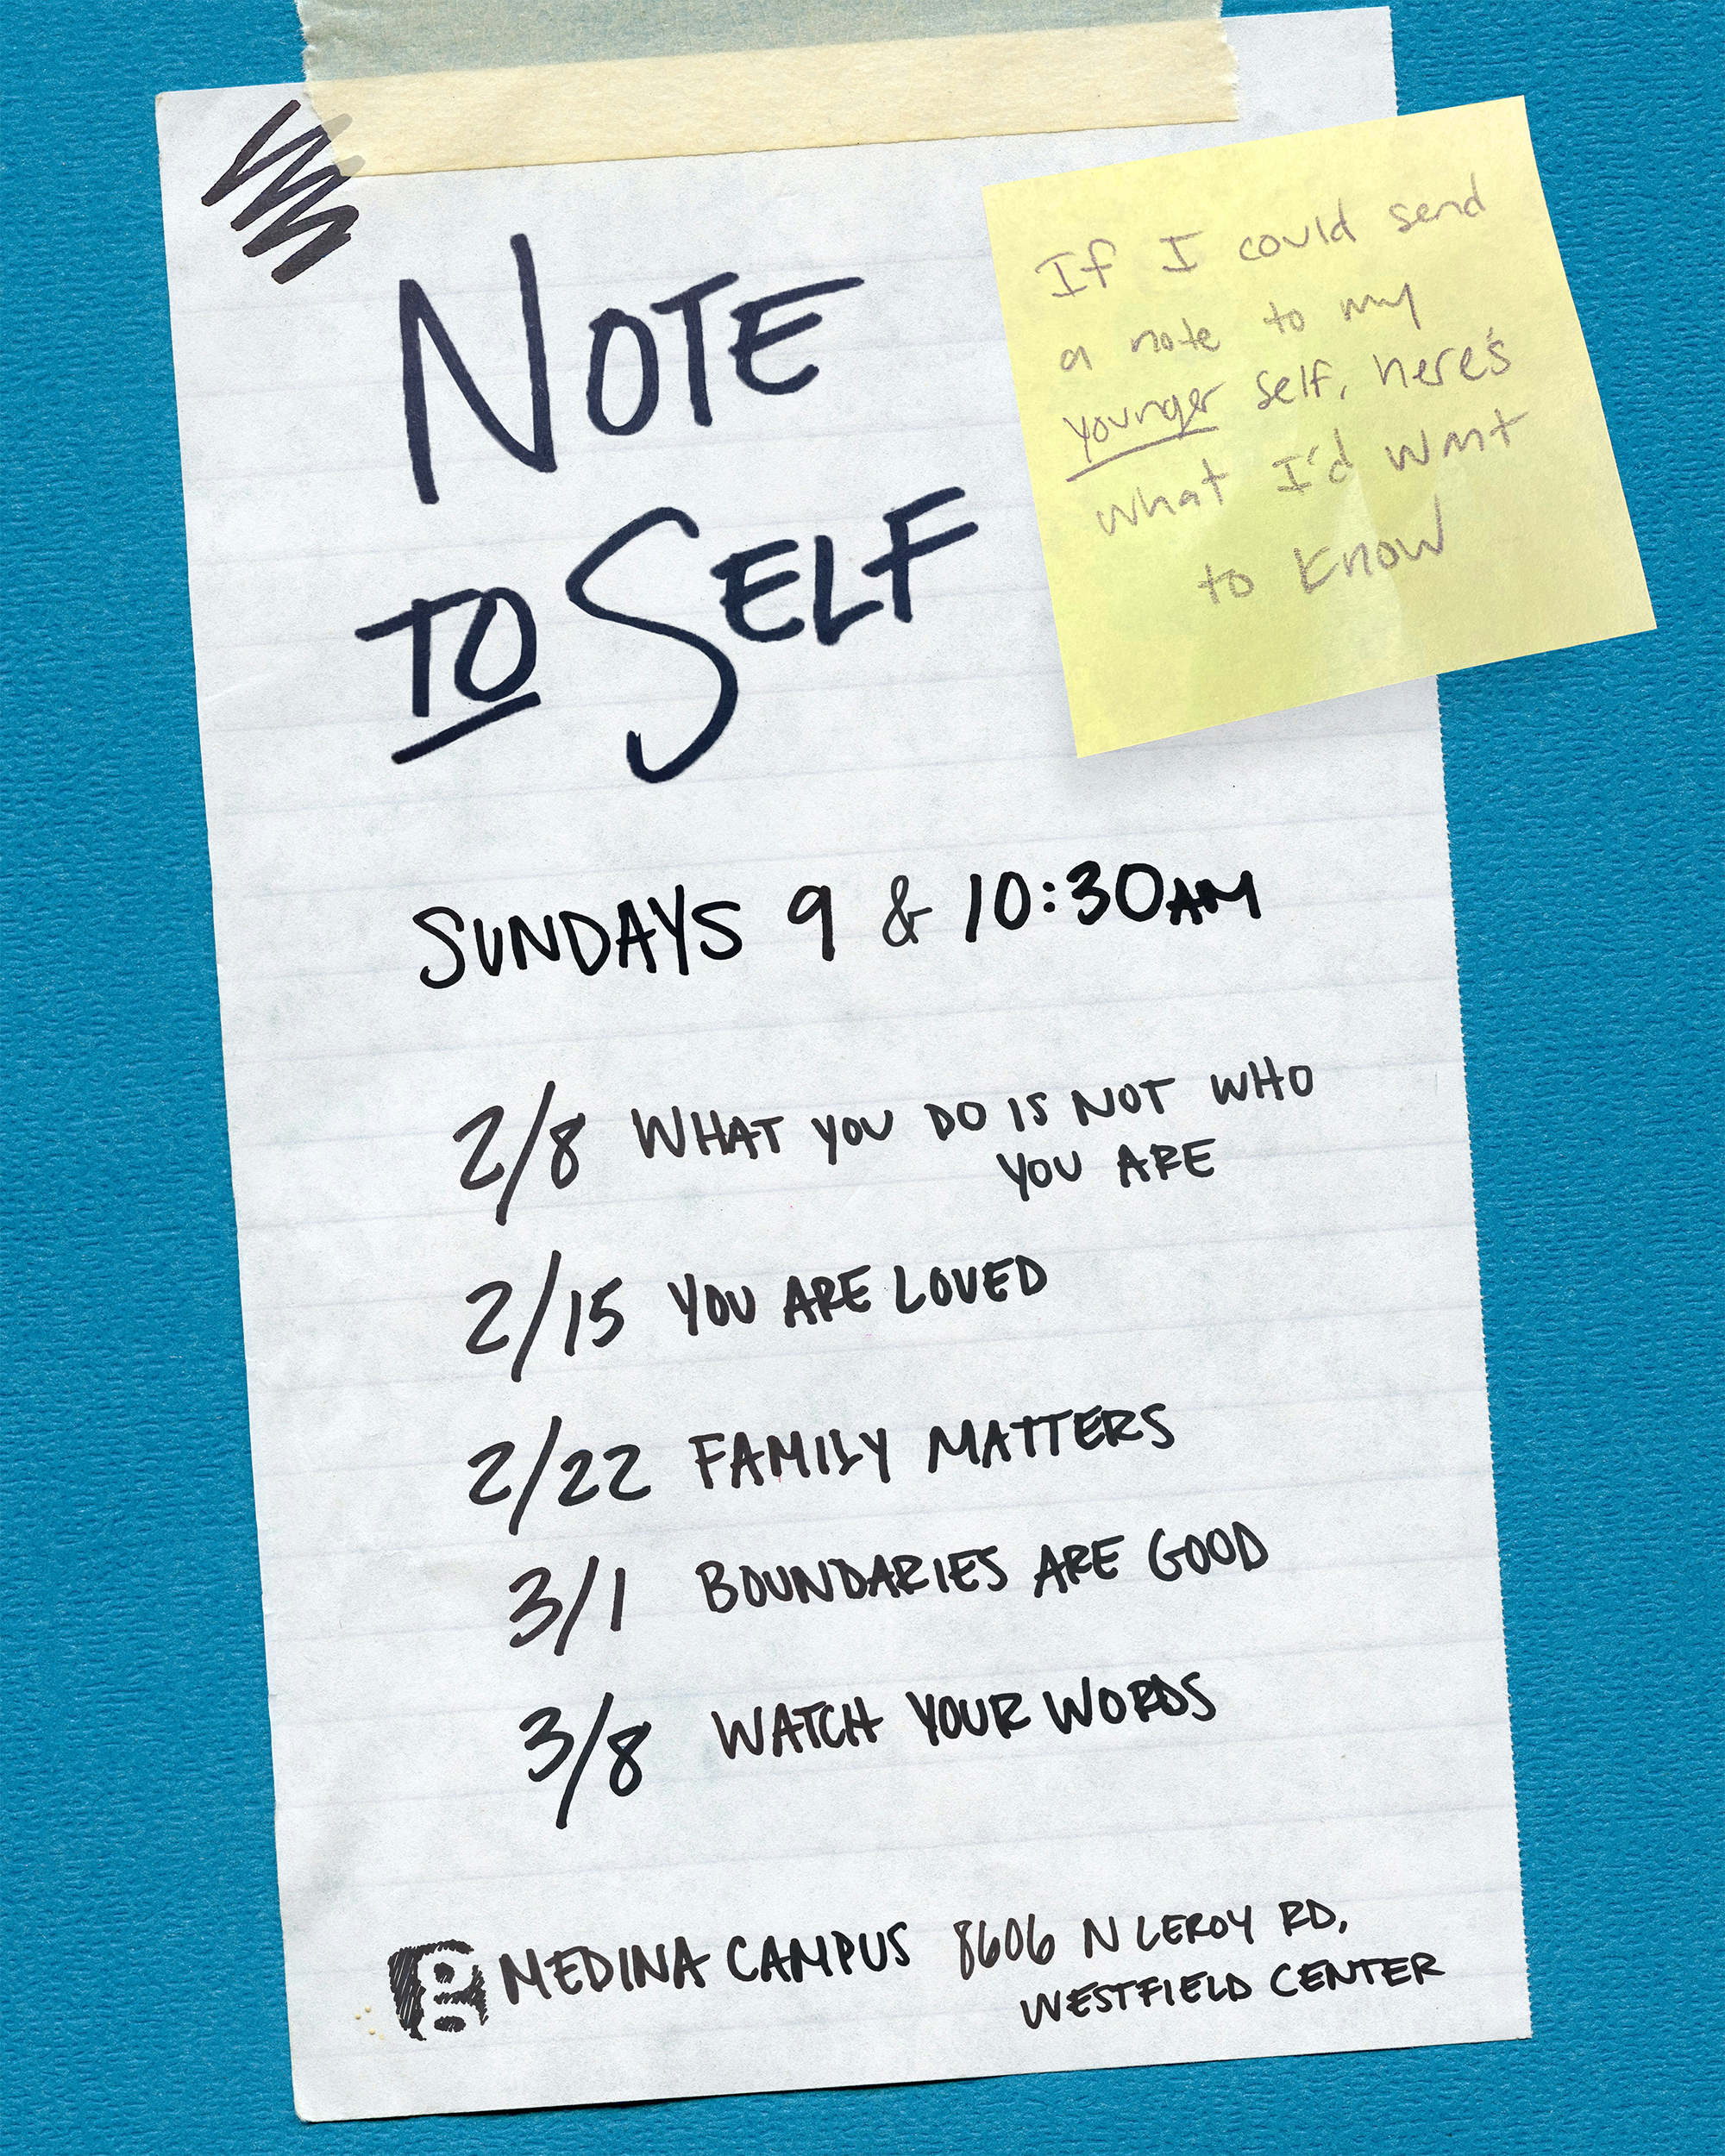 NOTE
TO SELF
If I could send
a note to my
younger self, here's
what I'd want
to know
SUNDAYS 9 & 10:30AM
2/8 WHAT YOU DO IS NOT WHO
YOU ARE
2/15 YOU ARE LOVED
2/22 FAMILY MATTERS
3/1 BOUNDARIES ARE GOOD
3/8 WATCH YOUR WORDS
MEDINA CAMPUS 8606 N LEROY RD,
WESTFIELD CENTER